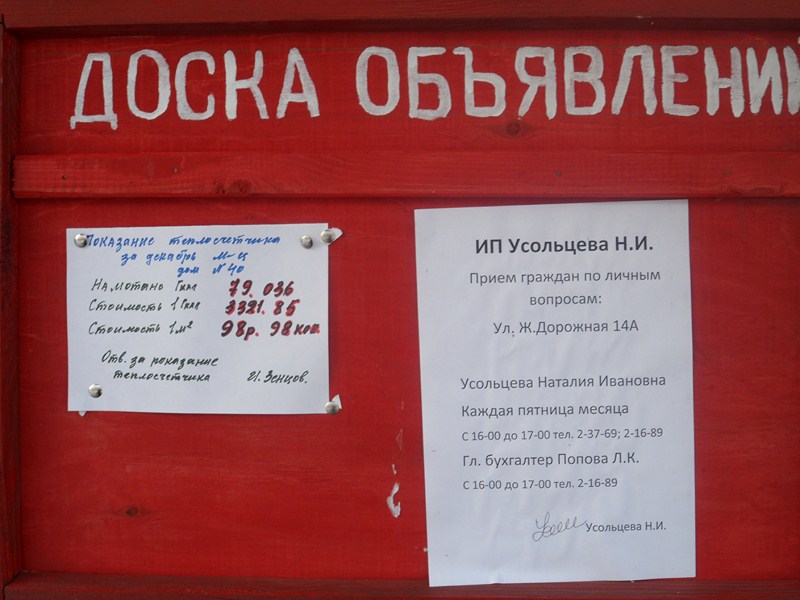 ДОСКА ОБЪЯВЛЕНИ
Показание теплосчетчика
за декабрь м-ц
дом № 40
Намотано Гкал 79.036
Стоимость 1 Гкал 3321.85
Стоимость 1 м² 98р. 98коп
Отв. за показание
теплосчетчика И. Зенцов.
ИП Усольцева Н.И.
Прием граждан по личным
вопросам:
Ул. Ж.Дорожная 14А
Усольцева Наталия Ивановна
Каждая пятница месяца
С 16-00 до 17-00 тел. 2-37-69; 2-16-89
Гл. бухгалтер Попова Л.К.
С 16-00 до 17-00 тел. 2-16-89
Усольцева Н.И.